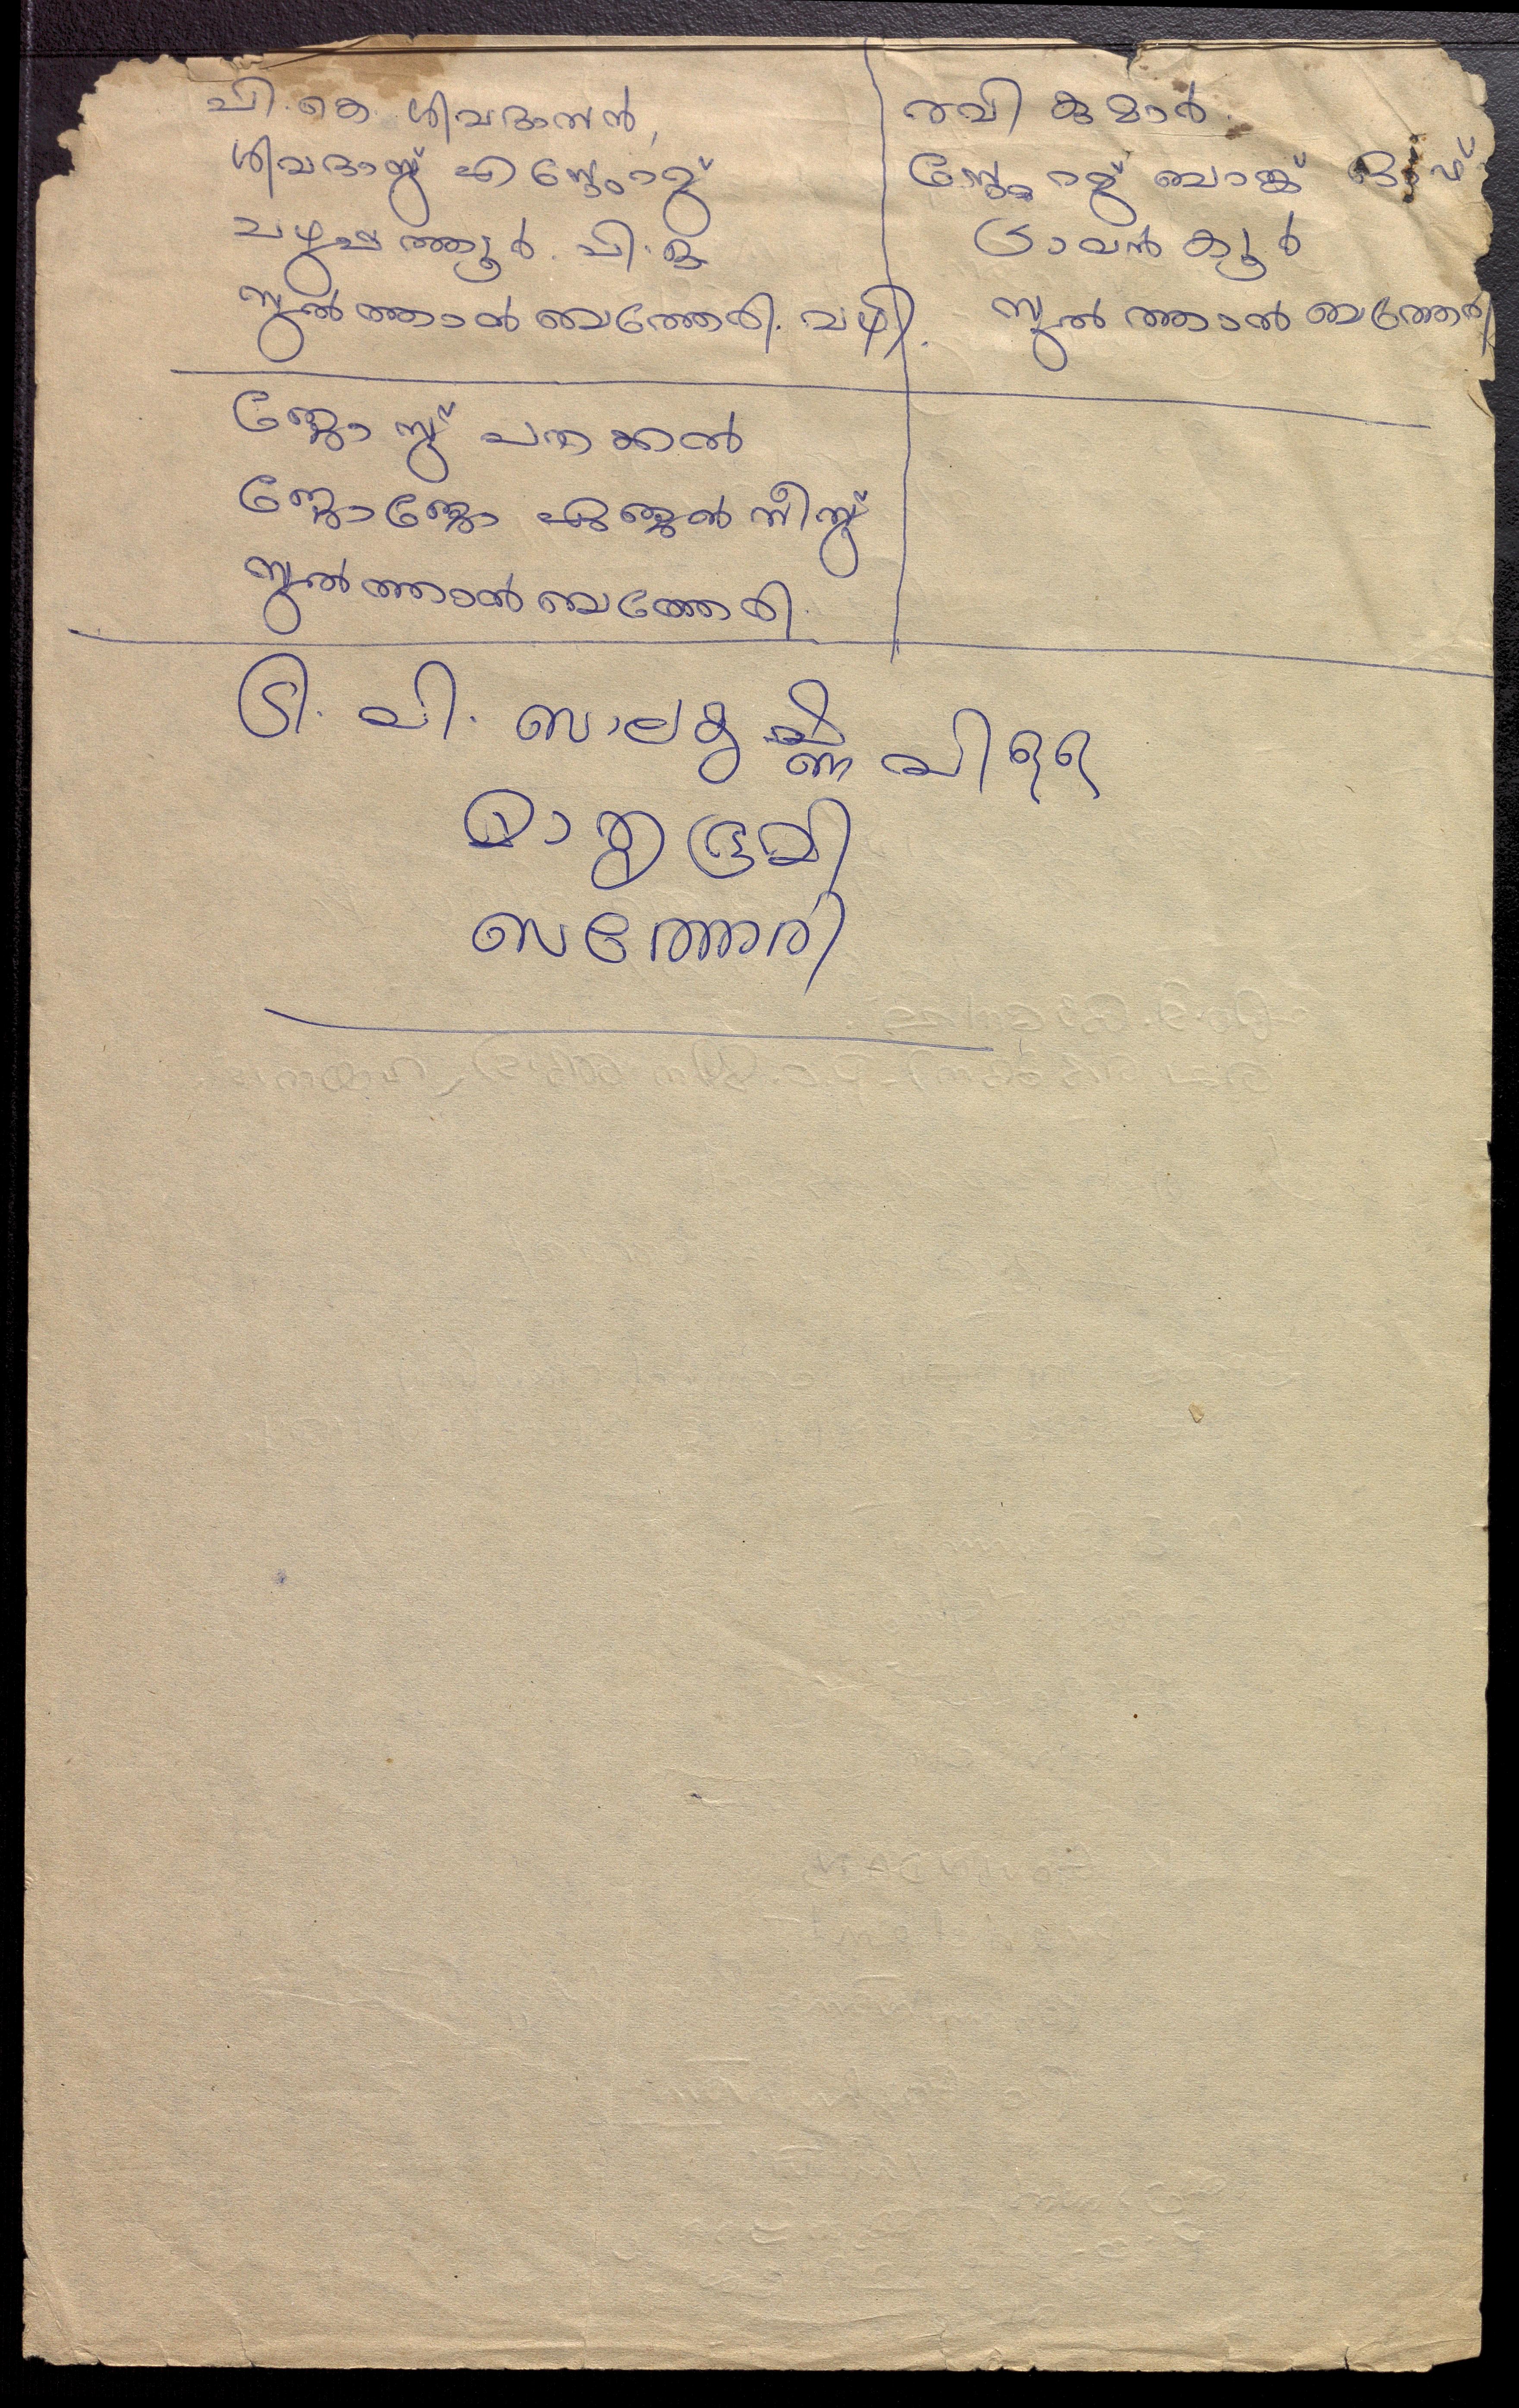 പി. കെ. ശിവദാസൻ,
ശിവദാസ് എസ്റ്റേറ്റ്
പഴുപ്പത്തൂർ. പി. ഒ
സുൽത്താൻ ബത്തേരി. വഴി.
രവി കുമാർ.
സ്റ്റേറ്റ് ബാങ്ക് ഓഫ്
ട്രാവൻകൂർ
സുൽത്താൻ ബത്തേരി
ജോസ് പാറക്കൽ
ജോജോ ഏജൻസീസ്
സുൽത്താൻ ബത്തേരി.
ടി. വി. ബാലകൃഷ്ണ പിള്ള
മാതൃഭൂമി
ബത്തേരി